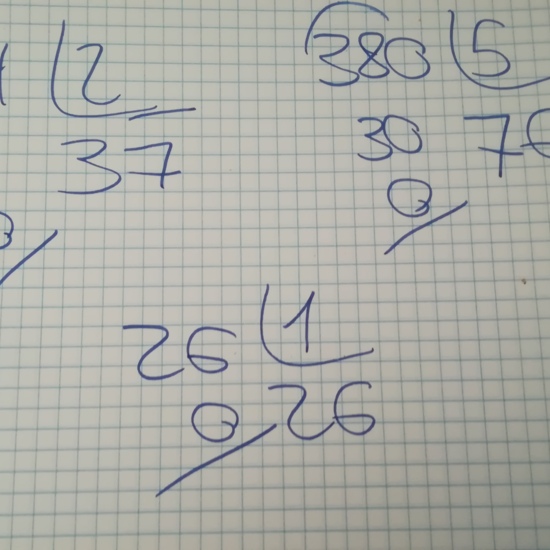 2
37
380 5
30 7
0
26 1
0 26